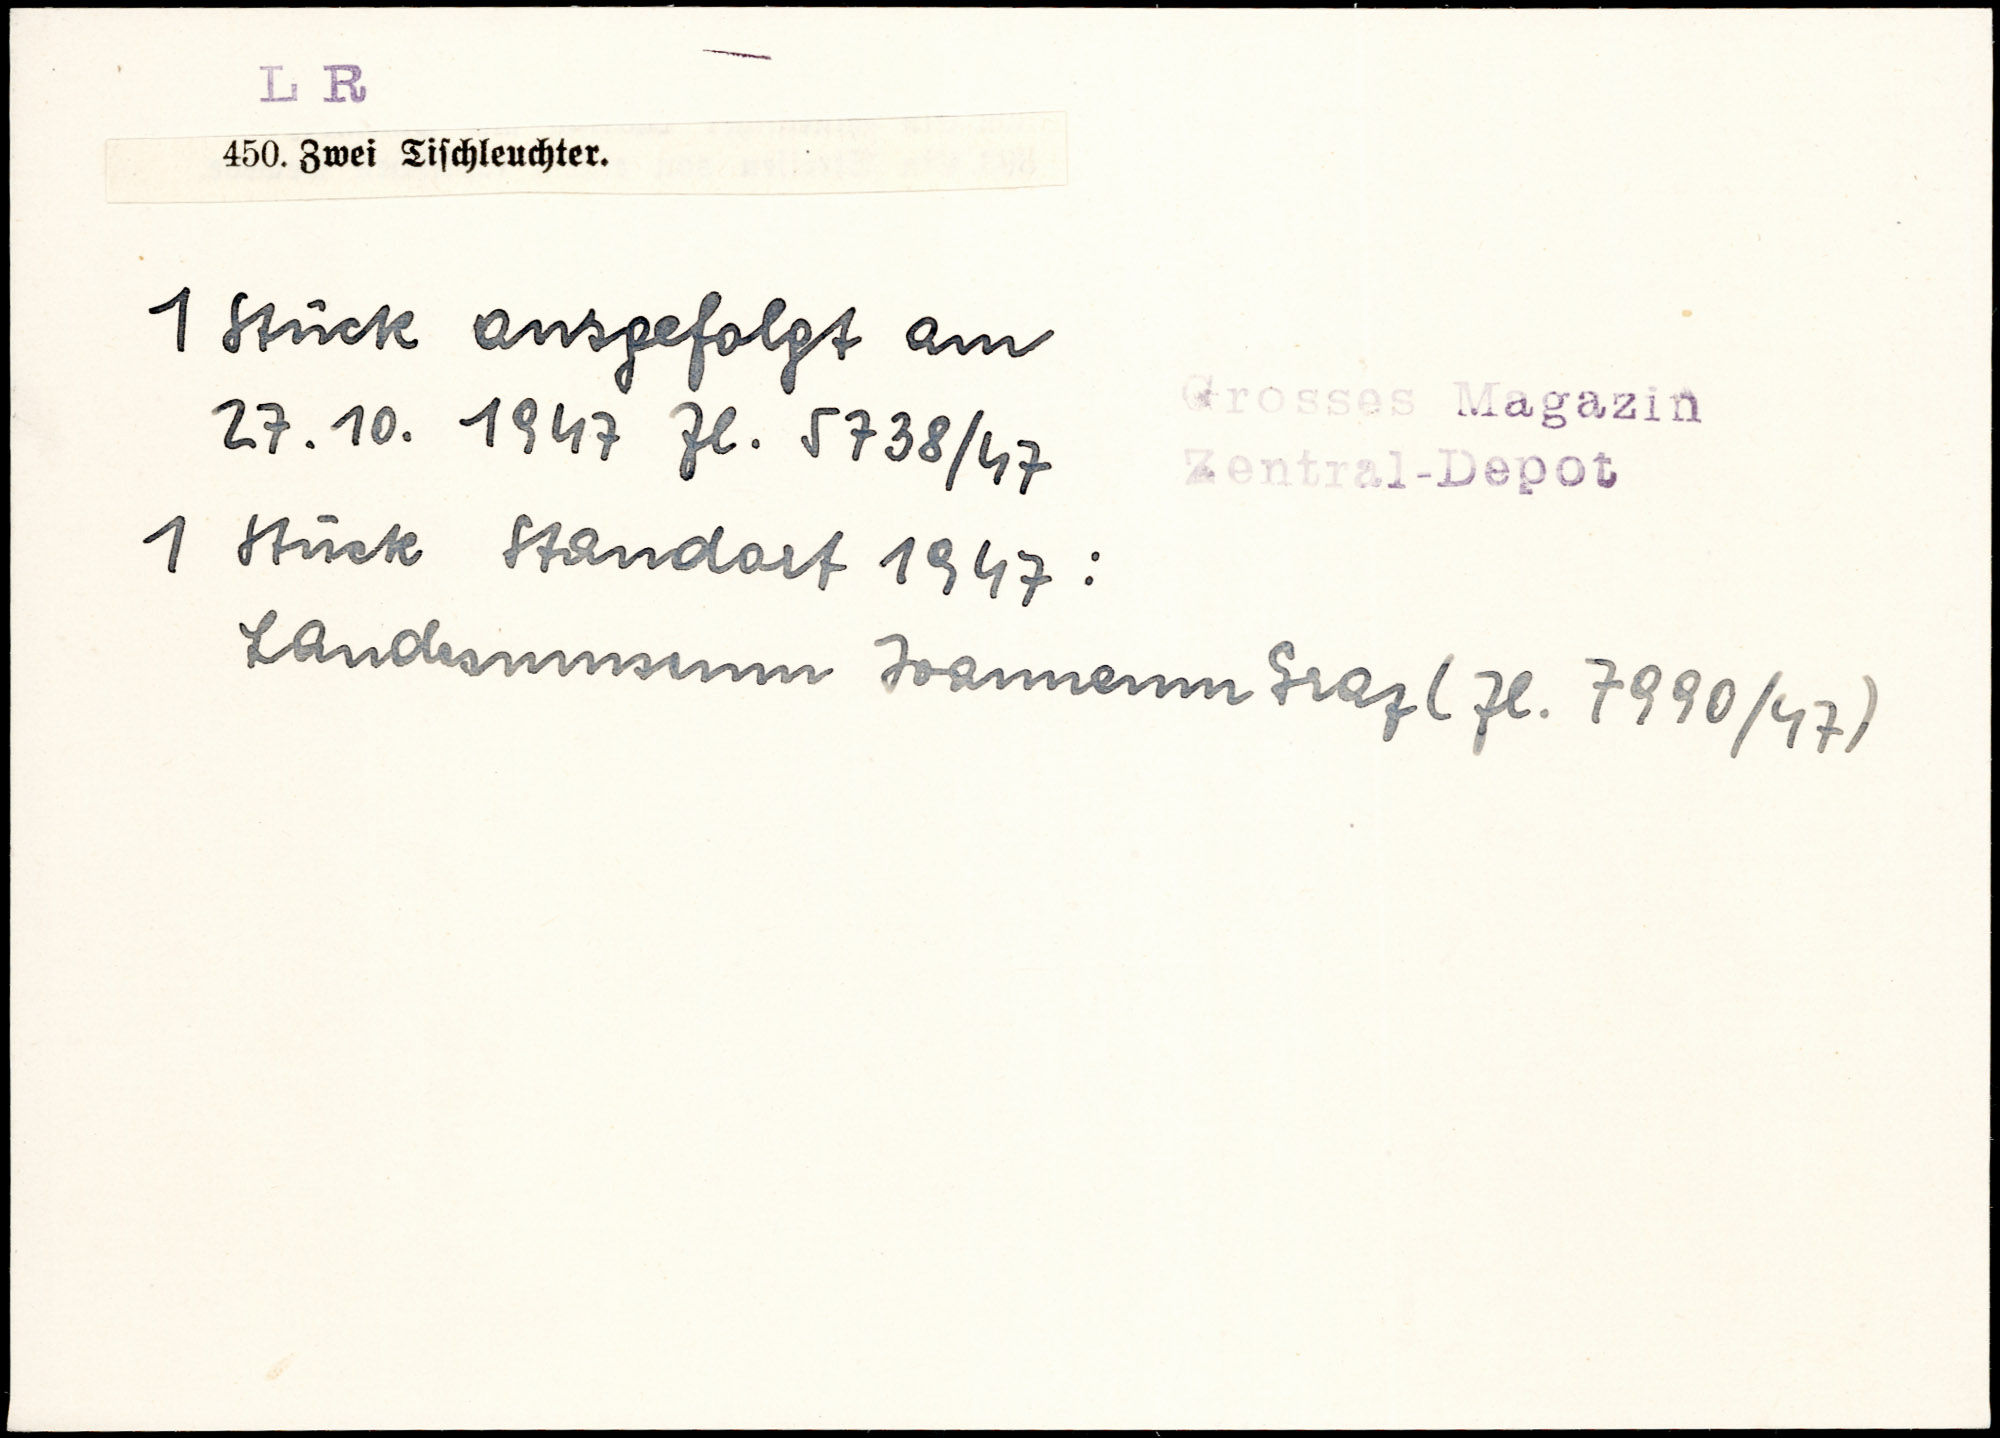 L R
450. Zwei Tischleuchter.
1 Stück ausgefolgt am
27.10. 1947 Zl. 5738/47
Grosses Magazin
Zentral-Depot
1 Stück Standort 1947:
Landesmuseum Joanneum Graz (Zl. 7990/47)